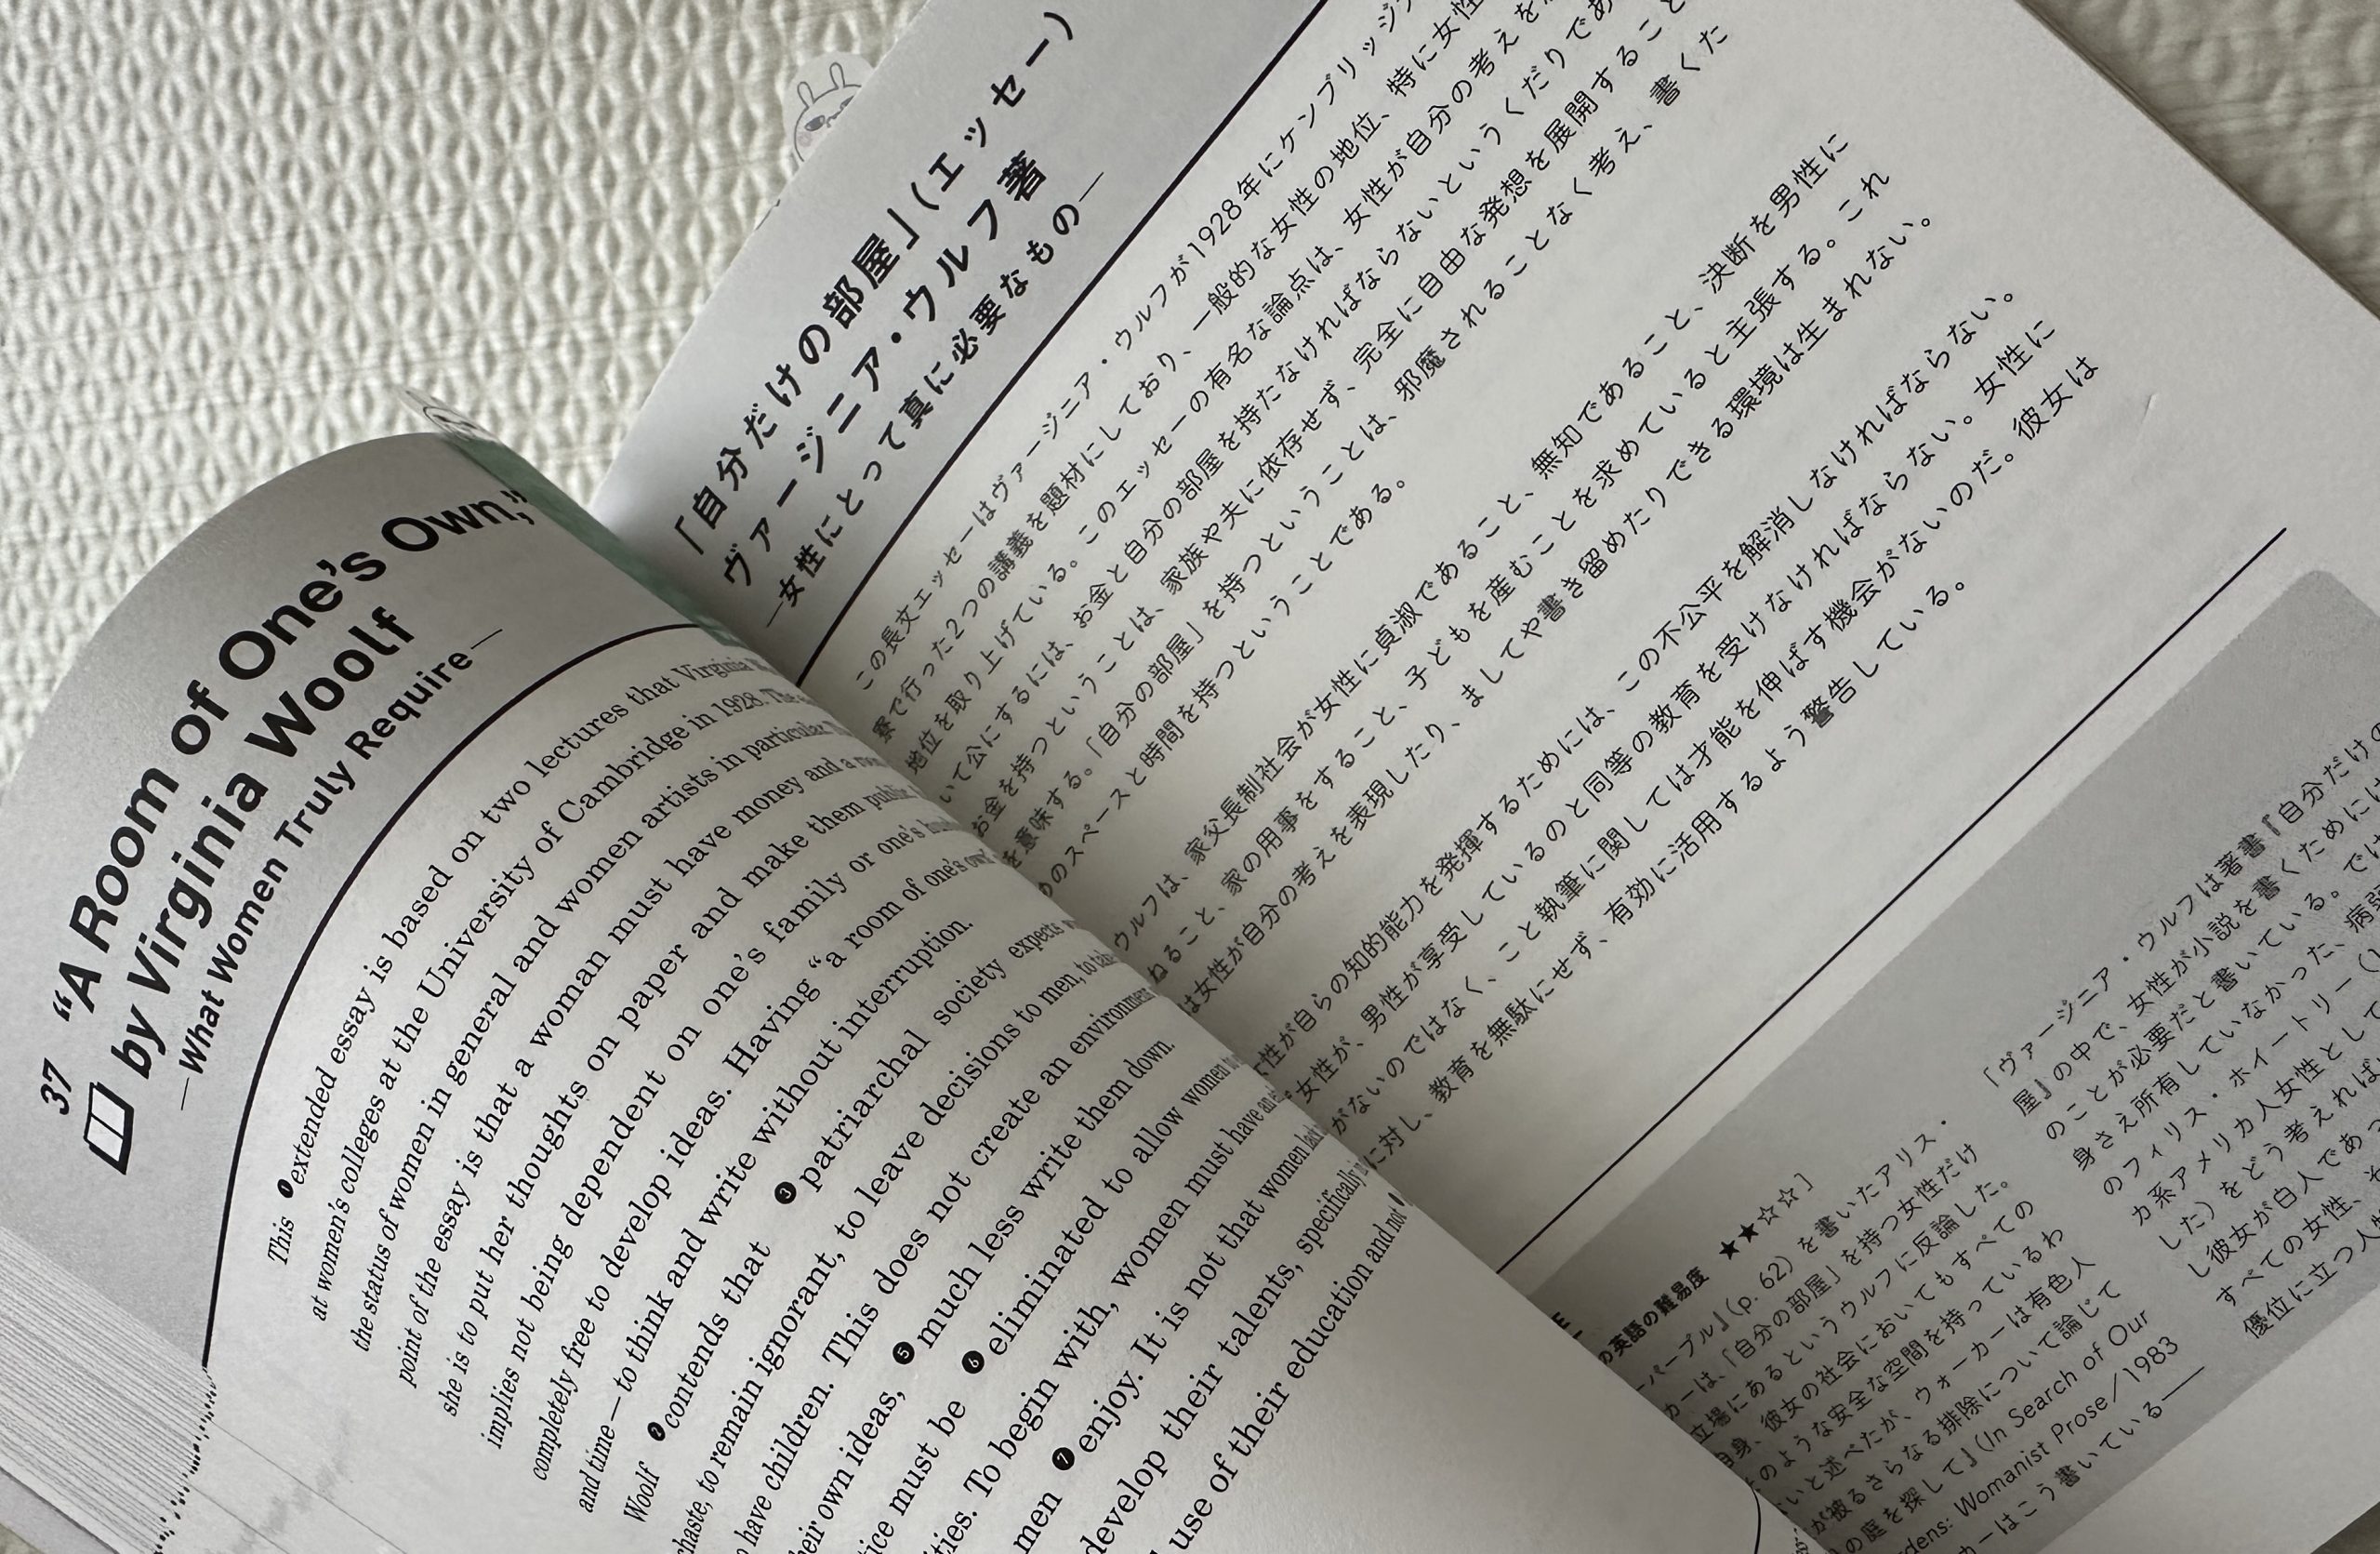 37
“A Room of One’s Own,”
by Virginia Woolf
—What Women Truly Require—
This ❶extended essay is based on two lectures that Virginia
at women’s colleges at the University of Cambridge in 1928. The
the status of women in general and women artists in particular.
point of the essay is that a woman must have money and a room
she is to put her thoughts on paper and make them public.
implies not being dependent on one’s family or one’s
completely free to develop ideas. Having “a room of one’s own”
and time—to think and write without interruption.
Woolf ❷contends that ❸patriarchal society expects
chaste, to remain ignorant, to leave decisions to men, to
have children. This does not create an environment
their own ideas, ❺much less write them down.
must be ❻eliminated to allow women to
To begin with, women must have
men ❼enjoy. It is not that women lack
develop their talents, specifically
use of their education and not
「自分だけの部屋」（エッセー）
ヴァージニア・ウルフ著
—女性にとって真に必要なもの—
この長文エッセーはヴァージニア・ウルフが1928年にケンブリッジ
寮で行った2つの講義を題材にしており、一般的な女性の地位、特に女性
地位を取り上げている。このエッセーの有名な論点は、女性が自分の考えを
いて公にするには、お金と自分の部屋を持たなければならないというくだりであ
お金を持つということは、家族や夫に依存せず、完全に自由な発想を展開すること
を意味する。「自分の部屋」を持つということは、邪魔されることなく考え、書くた
めのスペースと時間を持つということである。
ウルフは、家父長制社会が女性に貞淑であること、無知であること、決断を男性に
ねること、家の用事をすること、子どもを産むことを求めていると主張する。これ
は女性が自分の考えを表現したり、ましてや書き留めたりできる環境は生まれない。
女性が自らの知的能力を発揮するためには、この不公平を解消しなければならない。
女性が、男性が享受しているのと同等の教育を受けなければならない。女性に
がないのではなく、こと執筆に関しては才能を伸ばす機会がないのだ。彼女は
に対し、教育を無駄にせず、有効に活用するよう警告している。
の英語の難易度 ★★☆☆］
パープル』（p. 62）を書いたアリス・
カーは、「自分の部屋」を持つ女性だけ
立場にあるというウルフに反論した。
自身、彼女の社会においてもすべての
のような安全な空間を持っているわ
ないと述べたが、ウォーカーは有色人
が被るさらなる排除について論じて
の庭を探して』（In Search of Our
Gardens: Womanist Prose／1983
カーはこう書いている——
「ヴァージニア・ウルフは著書『自分だけの
屋』の中で、女性が小説を書くためには
のことが必要だと書いている。では
身さえ所有していなかった、病弱
のフィリス・ホイートリー
カ系アメリカ人女性として
した）をどう考えれば
し彼女が白人であっ
すべての女性、そ
優位に立つ人物